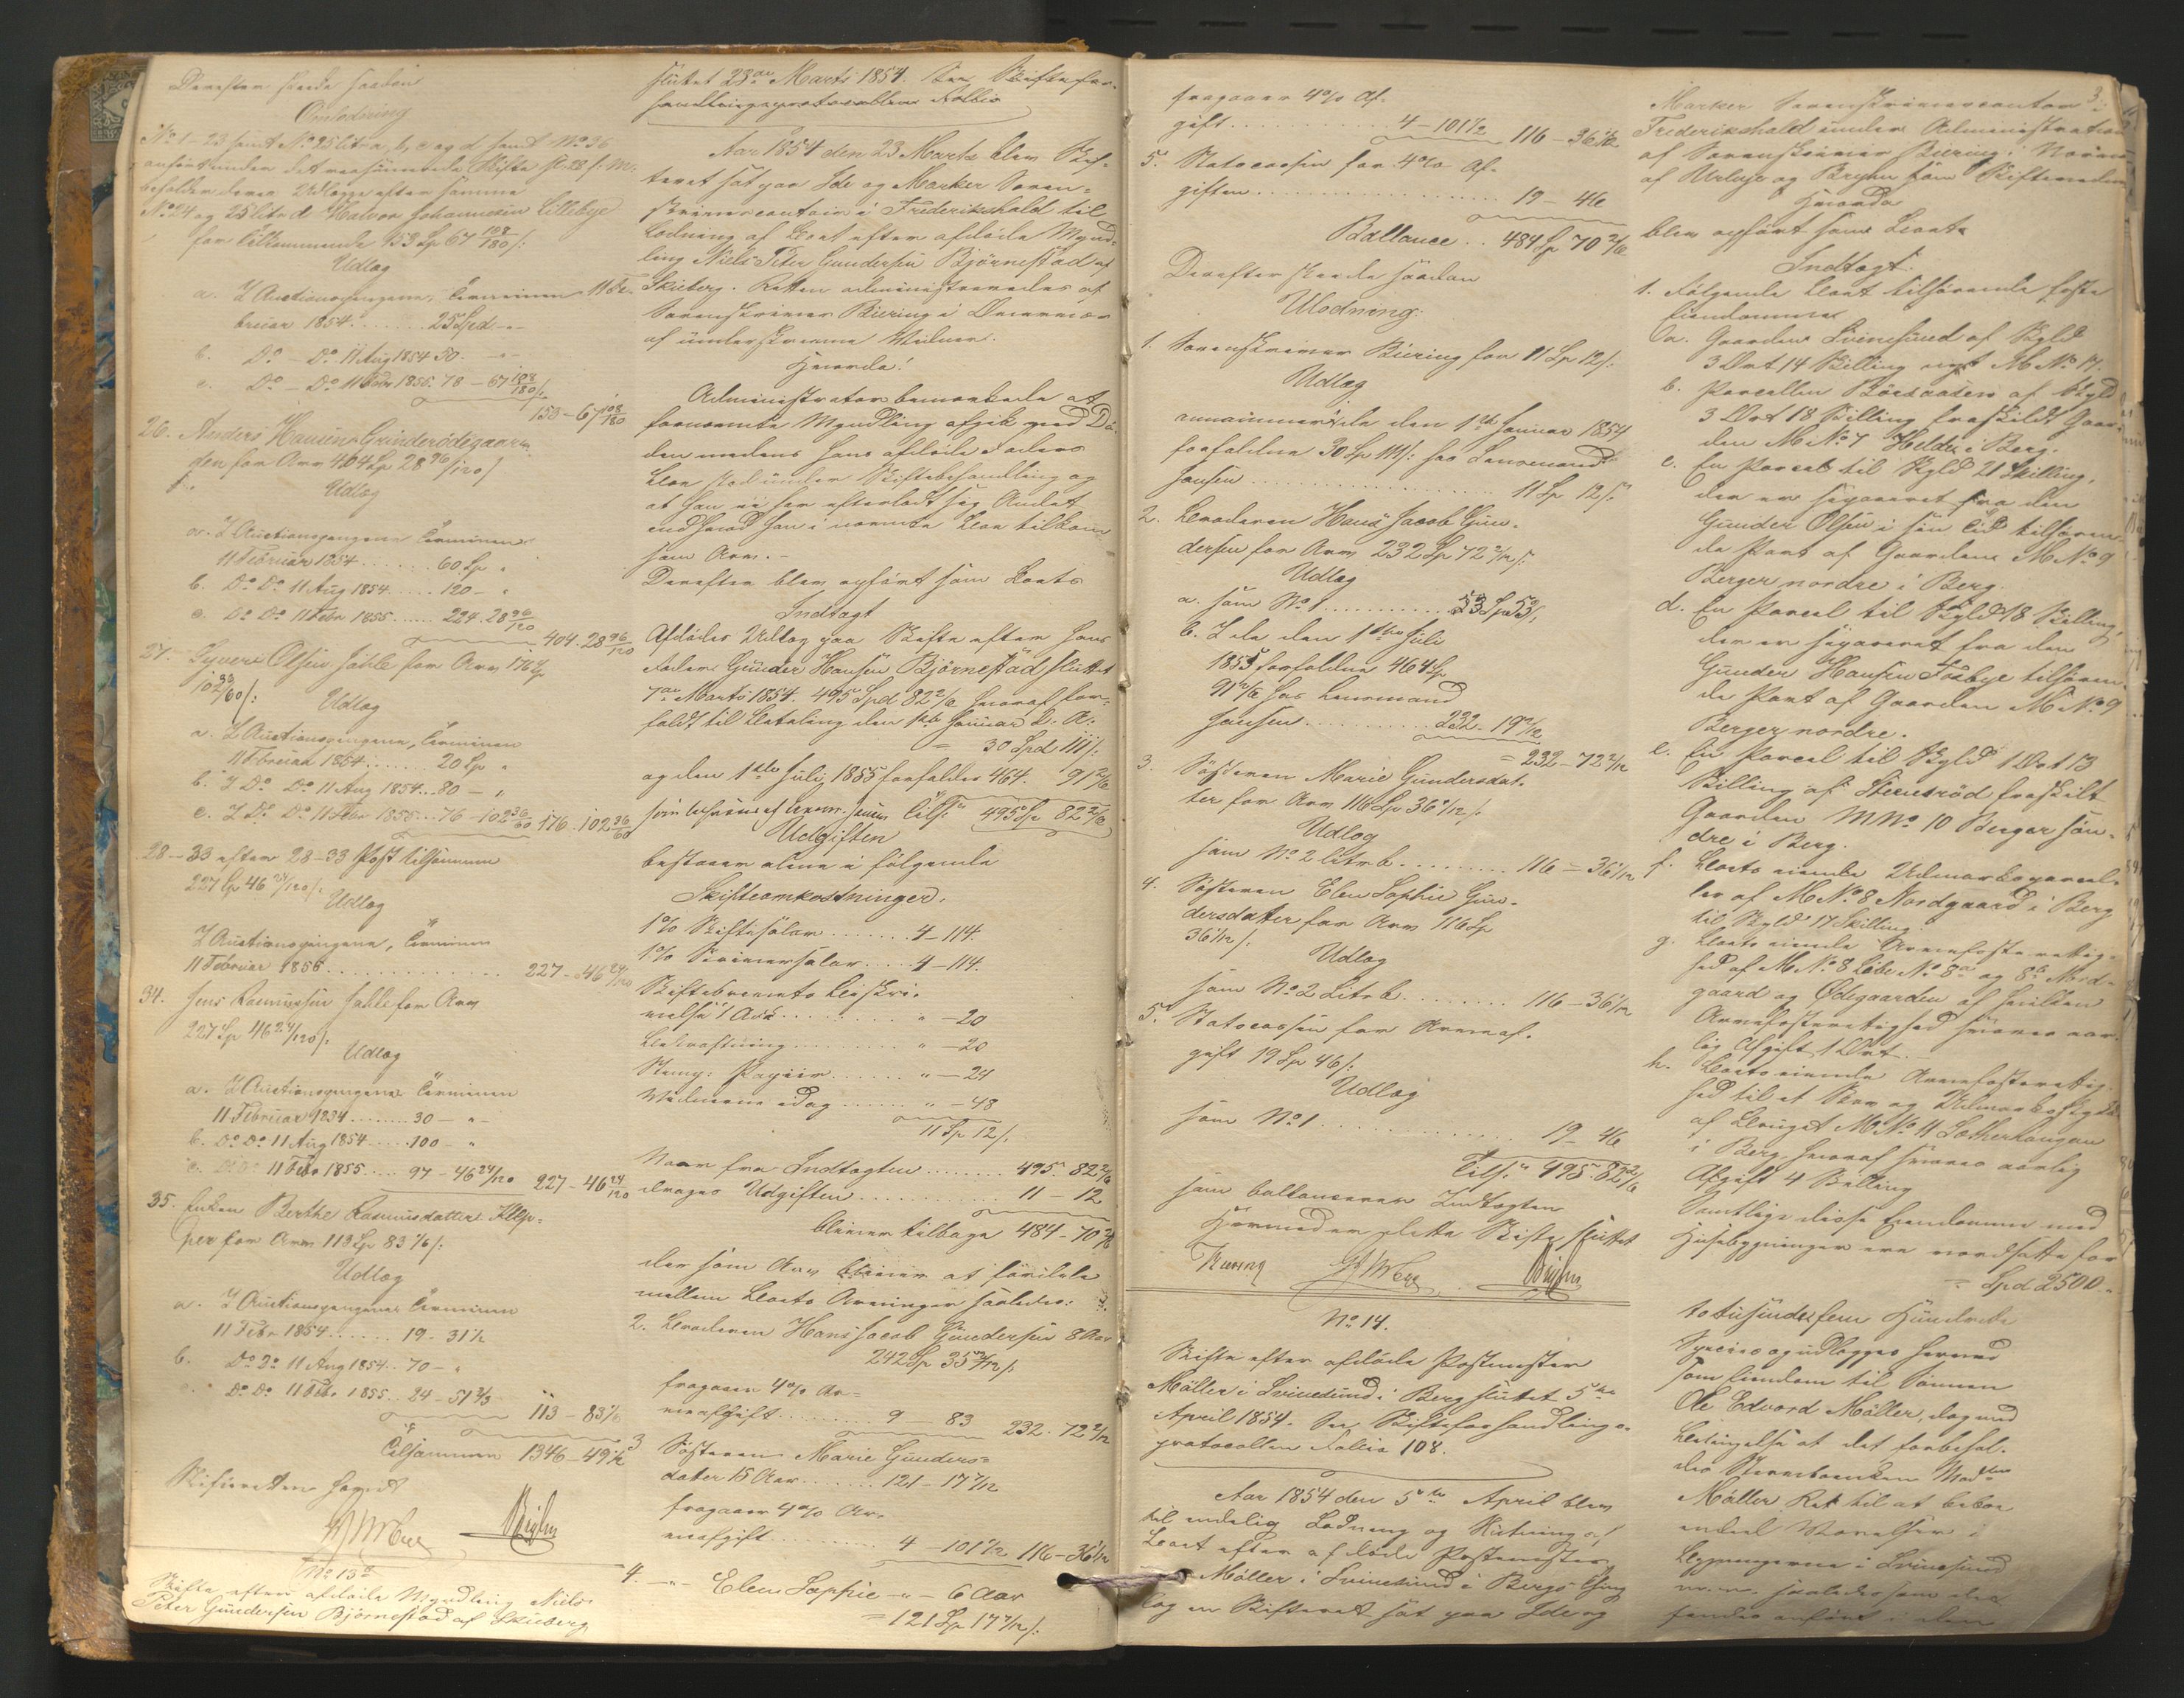 Derefter skeede saadan
Omlodning
No 1-23 samt No 25 litr a, b, c og d samt No 36
ansees under det
beholder deres Udlægge efter samme
No 24 og 25 litr d Halvor Johannesen Lillebye
for tilkommende 153 Sp 67 108/180 s:
Udlæg
a. I Auctionspengene, Terminen 11 Fe-
bruar 1854 ....... 25 Spd - "-
b. Do - Do 11 Aug 1854 50. - "-
c. Do - Do 11 Febr 1855. 78 - 67 108/180 s.
153 - 67 108/180
26. Anders Hansen Grinderödegaar-
den for Arv 404 Sp 28 96/120 s
Udlæg
a. I Auctionspengene Terminen
11 Februar 1854 ....... 60 Sp "
b. Do Do 11 Aug 1854 ..... 120 - "
c. Do Do 11 Febr 1855 ...... 224. 28 96/120
404. 28 96/120
27. Syver Olsen for Arv 176 Sp
102 36/60 s:
Udlæg
a. I Auctionspengene, Terminen
11 Februar 1854 ....... 20 Sp "
b. I Do Do 11 Aug 1854 ... 80 - "
c. I Do Do 11 Febr 1855 ... 76 - 102 36/60 176. 102 36/60
28-33 efter 28-33 Post tilsammen
227 Sp 46 24/120 s:
Udlæg
I Auctionspengene, Terminen
11 Februar 1855 ............... 227 - 46 24/120
34. Jens Rasmussen for Arv
227 Sp 46 24/120 s:
Udlæg
a. I Auctionspengene Terminen
11 Februar 1834 ........ 30 - "-
b. Do Do 11 Aug 1854 ..... 100 - "
c. Do Do 11 Febr 1855 .... 97 - 46 24/120 227 - 46 24/120
35. Enken Berthe Rasmusdatter Klep-
per for Arv 113 Sp 83 1/6 s:
Udlæg
a. I Auctionspengene Terminen
11 Febr 1854 ...... 19 - 31 1/2
b. Do Do 11 Aug 1854 .. 70 - "
c. Do Do 11 Febr 1855 .. 24 - 51 2/3
113 - 83 1/6
Tilsammen 1346 - 49 1/2
Skifteretten hævet
No 13
Skifte efter afdöde Myndling Niels
Peter Gundersen Björnestad af Skieberg
sluttet 23de Marts 1854. See Skiftefor-
handlingsprotocollens Follio
Aar 1854 den 23 Marts blev Skif-
teret sat paa Ide og Marker Soren-
skrivercontoir i Frederikshald til
Lodning af Boet efter afdöde Mynd-
ling Niels Peter Gundersen Björnestad af
Skieberg. Retten administreredes af
Sorenskriver Biering i Overvær
af underskrevne Vidner.
Hvorda!
Administrator bemærkede at
fornævnte Myndling afgik ved Dö-
den medens hans afdöde Faders
Boe stod under Skiftebehandling og
at han ei har efterladt sig Andet
end hvad han i nævnte Boe tilkom
som Arv. -
Derefter blev opfört som Boets
Indtægt
Afdödes Udlæg paa Skifte efter hans
Fader Gunder Hansen Björnestad sluttet
7de Marts 1854. 495 Spd 82 2/6 hvoraf for-
faldt til Betaling den 1ste Januar D. A.:
= 30 Spd 111 s:
og den 1ste Juli 1855 forfalder 464. 91 2/6
Tils: 495 Sp 82 2/6
Udgiften
bestaaer alene i fölgende
Skifteomkostninger.
1% Skiftesalær ....... 4 - 114.
1% Skriversalær .... 4 - 114.
Skiftebrevets Beskri-
velse 1 Ark ......... " - 20
Bekræftning ........ " - 20
Stemp: Papiir ...... " - 24
Vidnerne idag ...... " - 48
11 Sp 12 s:
Naar fra Indtægten ........ 495. 82 2/6
drages Udgiften ............. 11 - 12
bliver tilbage 484 - 70 2/6
der som Arv bliver at fordele
mellem Boets Arvinger saaledes:
2. Broderen Hans Jacob Gundersen 8 Aar
242 Sp 35 2/12 s:
fragaaer 4% Ar-
veafgift ......... 9 - 83 232. 72 2/12
3 Söstren Marie Gunders-
dater 15 Aar ...... 121 - 17 7/12
fragaaer 4% Ar-
veafgift ........... 4 - 101 1/2 116 - 36 1/12
4. - " - Elen Sophie - " - 6 Aar
= 121 Sp 17 7/12 s:
fragaaer 4% Af-
gift ............ 4 - 101 1/2 116 - 36 1/12
5. Statscassen for 4% Af-
giften ................. 19 - 46
Ballance .. 484 Sp 70 2/6
Derefter skeede saadan
Udlodning.
1. Sorenskriver Biering for 11 Sp 12 s:
Udlæg
den 1ste Januar 1854
forfaldne 30 Sp 111 s: hos Lensmand
Hansen .............. 11 Sp 12 s:
2. Broderen Hans Jacob Gun-
dersen for Arv 232 Sp 72 2/12 s:
Udlæg
a. som No 1 ........... 53 s,
b. I de den 1ste Juli
1855 forfaldne 464 Sp
91 2/6 hos Lensmand
Hansen .......... 232 - 19 2/12
= 232 - 72 2/12
3. Söstren Marie Gundersdat-
ter for Arv 116 Sp 36 1/12 s:
Udlæg
som No 2 litr b ........ 116 - 36 1/12
4. Söstren Elen Sophie Gun-
dersdater for Arv 116 Sp
36 1/12 s:
Udlæg
som No 2 Litr b ........ 116 - 36 1/12
5. Statscassen for Arveaf-
gift 19 Sp 46 s:
Udlæg
som No 1 .............. 19 - 46
Tils: 495. 82 2/6
som ballancerer Indtægten
Hermed er dette Skifte sluttet
Biering
No 14.
Skifte efter afdöde Postmester
Möller i Svinesund i Berg sluttet 5te
April 1854. See Skifteforhandlings-
protocollen Follio 108.
Aar 1854 den 5te April blev
til endelig Lodning og Slutning af
Boet efter afdöde Postmester
Möller i Svinesund i Bergs Sogn
Skifteret sat paa Ide og
Marker Sorenskrivercontor 3.
Frederikshald under Administration
af Sorenskriver Biering i Nærvær
af Urbye og Bryhn som Skiftevidner
Hvorda
blev opfört som Boets
Indtægt.
1. Fölgende Boet tilhörende faste
Eiendomme
a. Gaarden Svinesund af Skyld
3 Ort 14 Skilling nyt M No 17.
b. Parcellen Böesaasen af Skyld
3 Ort 18 Skilling fraskildt Gaar-
den M No 7 Helder i Berg.
c. En Parcel til Skyld 21 Skilling,
der er separeret fra den
Gunder Olsen i sin Tid tilhören-
de Part af Gaarden M No 9
Berger nordre i Berg.
d. En Parcel til Skyld 18 Skilling,
der er separeret fra den
Gunder Hansen Fosbye tilhören-
de Part af Gaarden M No 9
Berger nordre.
e. En Parcel til Skyld 1 Ort 13
Skilling af Steensröd fraskilt
Gaarden M No 10 Berger sön-
dre i Berg.
f. Boets eiende Udmarksparcel-
ler af M No 8 Nordgaard i Berg
til Skyld 17 Skilling
g. Boets eiende Arvefesterettig-
hed af M No 8 Löbe No 8a og 8b Nord-
gaard og Ödegaarden af hvilken
Arvefesterettighed svares aar-
lig Afgift 1 Ort. -
h. Boets eiende Arvefesterettig-
hed til et Skov og Udmarksstykke
af Bruget M No 11
i Berg, hvoraf svares aarlig
Afgift 4 Skilling
Samtlige disse Eiendomme med
Huusbygninger ere værdsatte for
= Spd 2500 -
totusinde fem Hundrede
Species og udlægges herved
som Eiendom til Sönnen
Ole Edvard Möller, dog med
Betingelse at det forbehol-
des Stervboenken Mad
Möller Ret til at beboe
endeel Værelser i
Bygningerne i Svinesund
m. m. saaledes som det
findes anfört i den